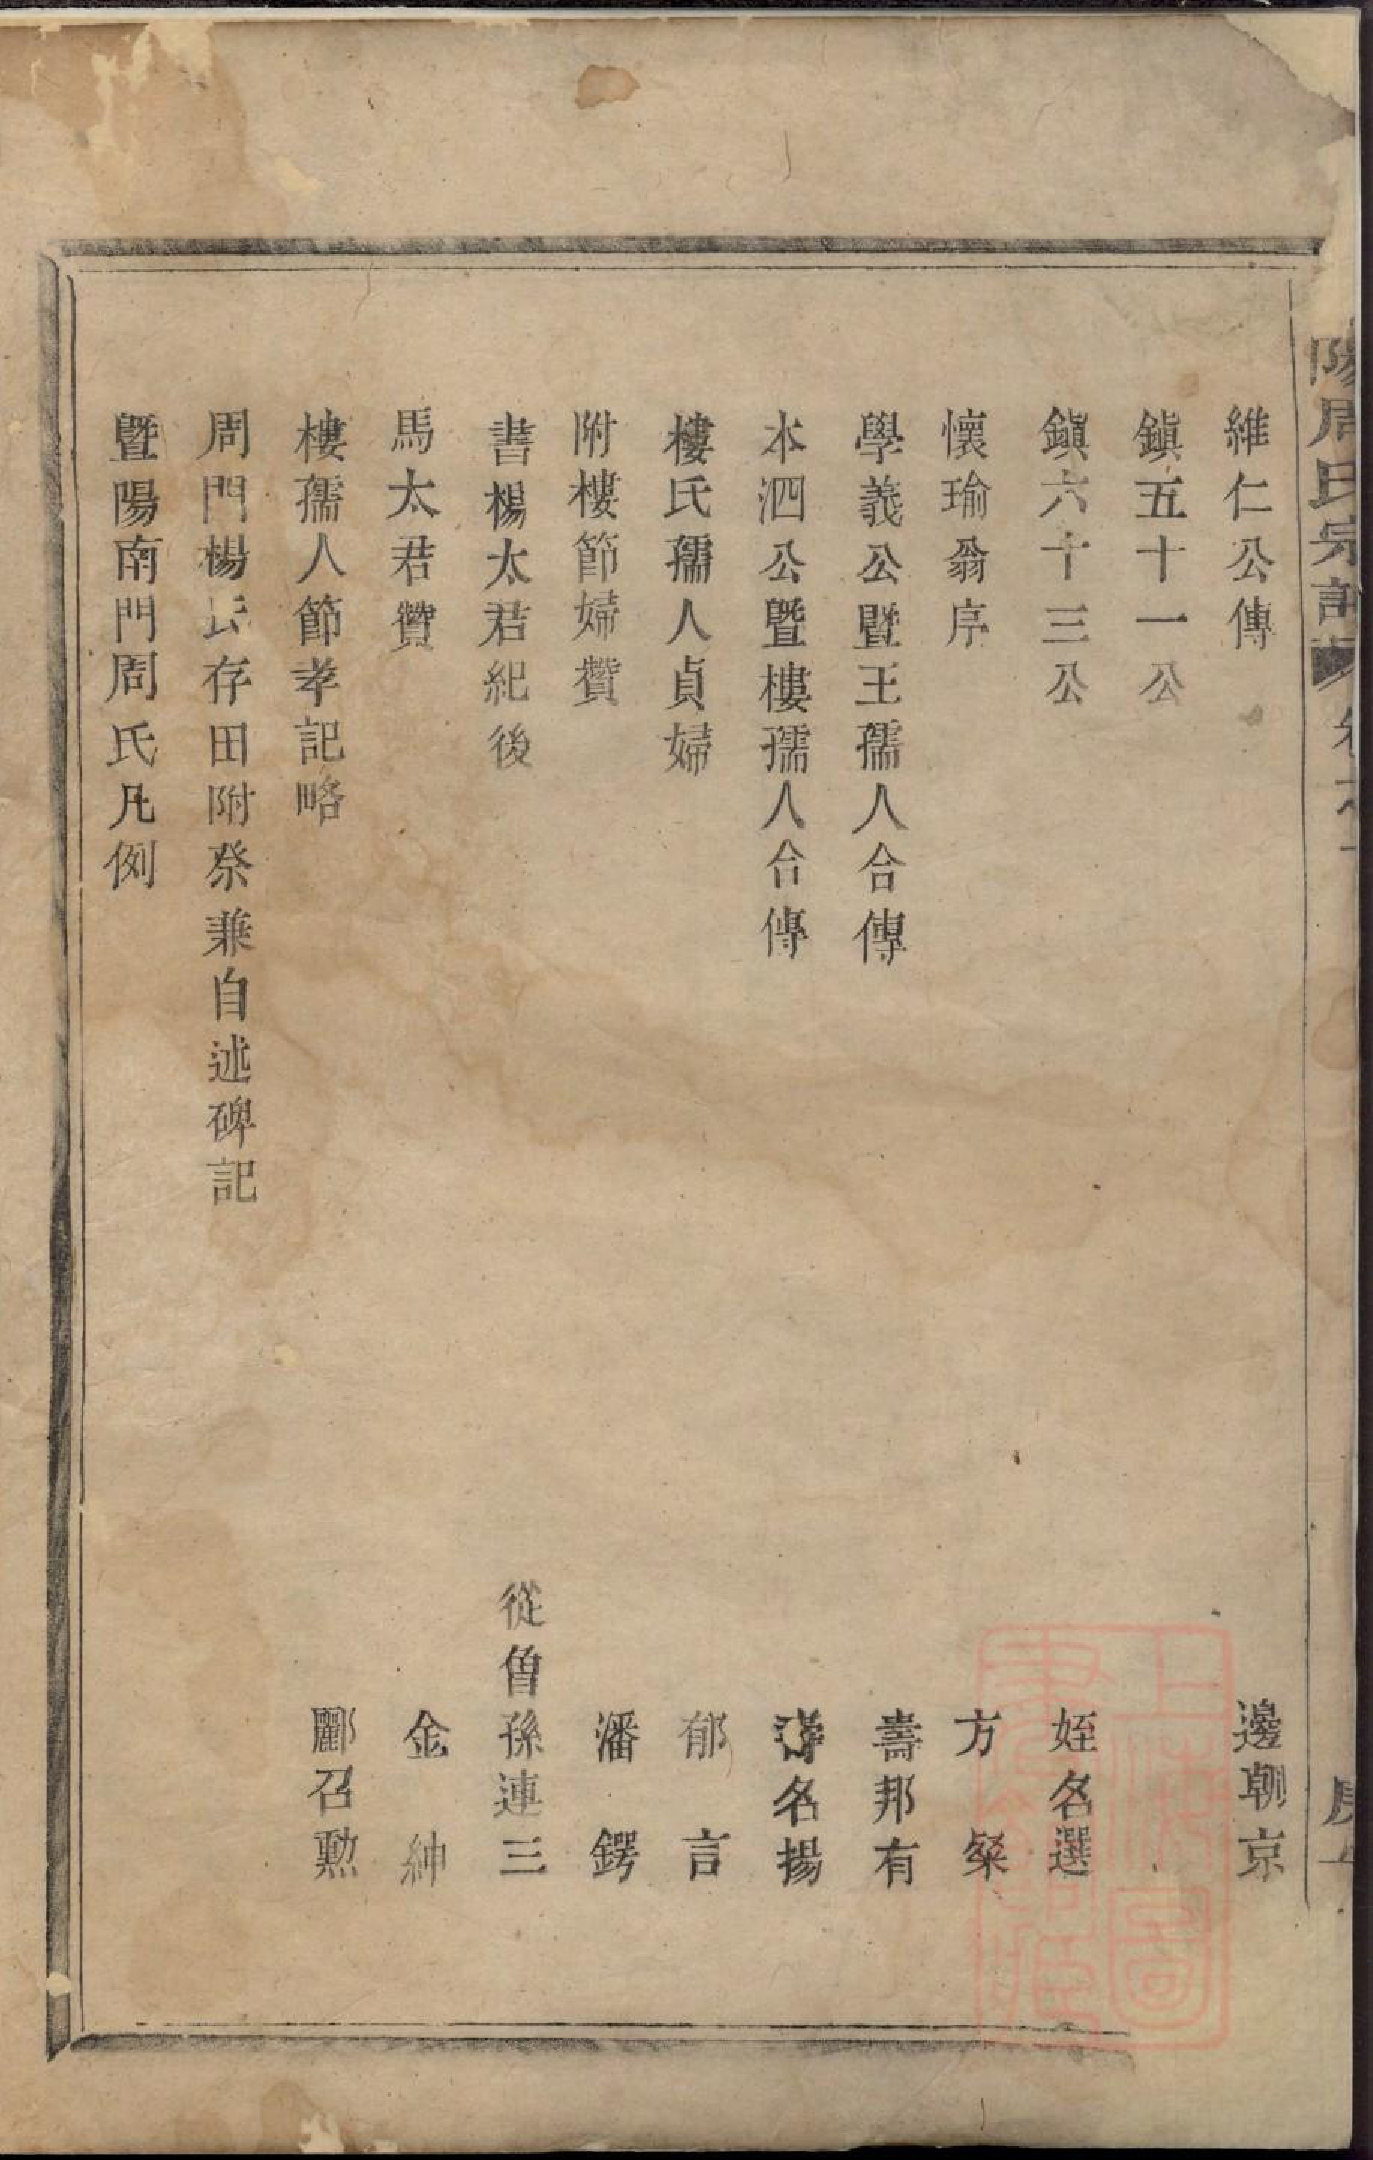 陽周氏宗譜 卷
維仁公傳 邊朝京
鎮五十一公
鎮六十三公 姪名選
懷瑜翁序 方粲
學義公暨王孺人合傳 壽邦有
本泗公暨樓孺人合傳 名揚
樓氏孺人貞婦 郁言
附樓節婦贊 潘鍔
書楊太君紀後 從曾孫連三
馬太君贊 金紳
樓孺人節孝記略 酈召勲
周門楊氏存田附祭兼自述碑記
暨陽南門周氏凡例
上海圖